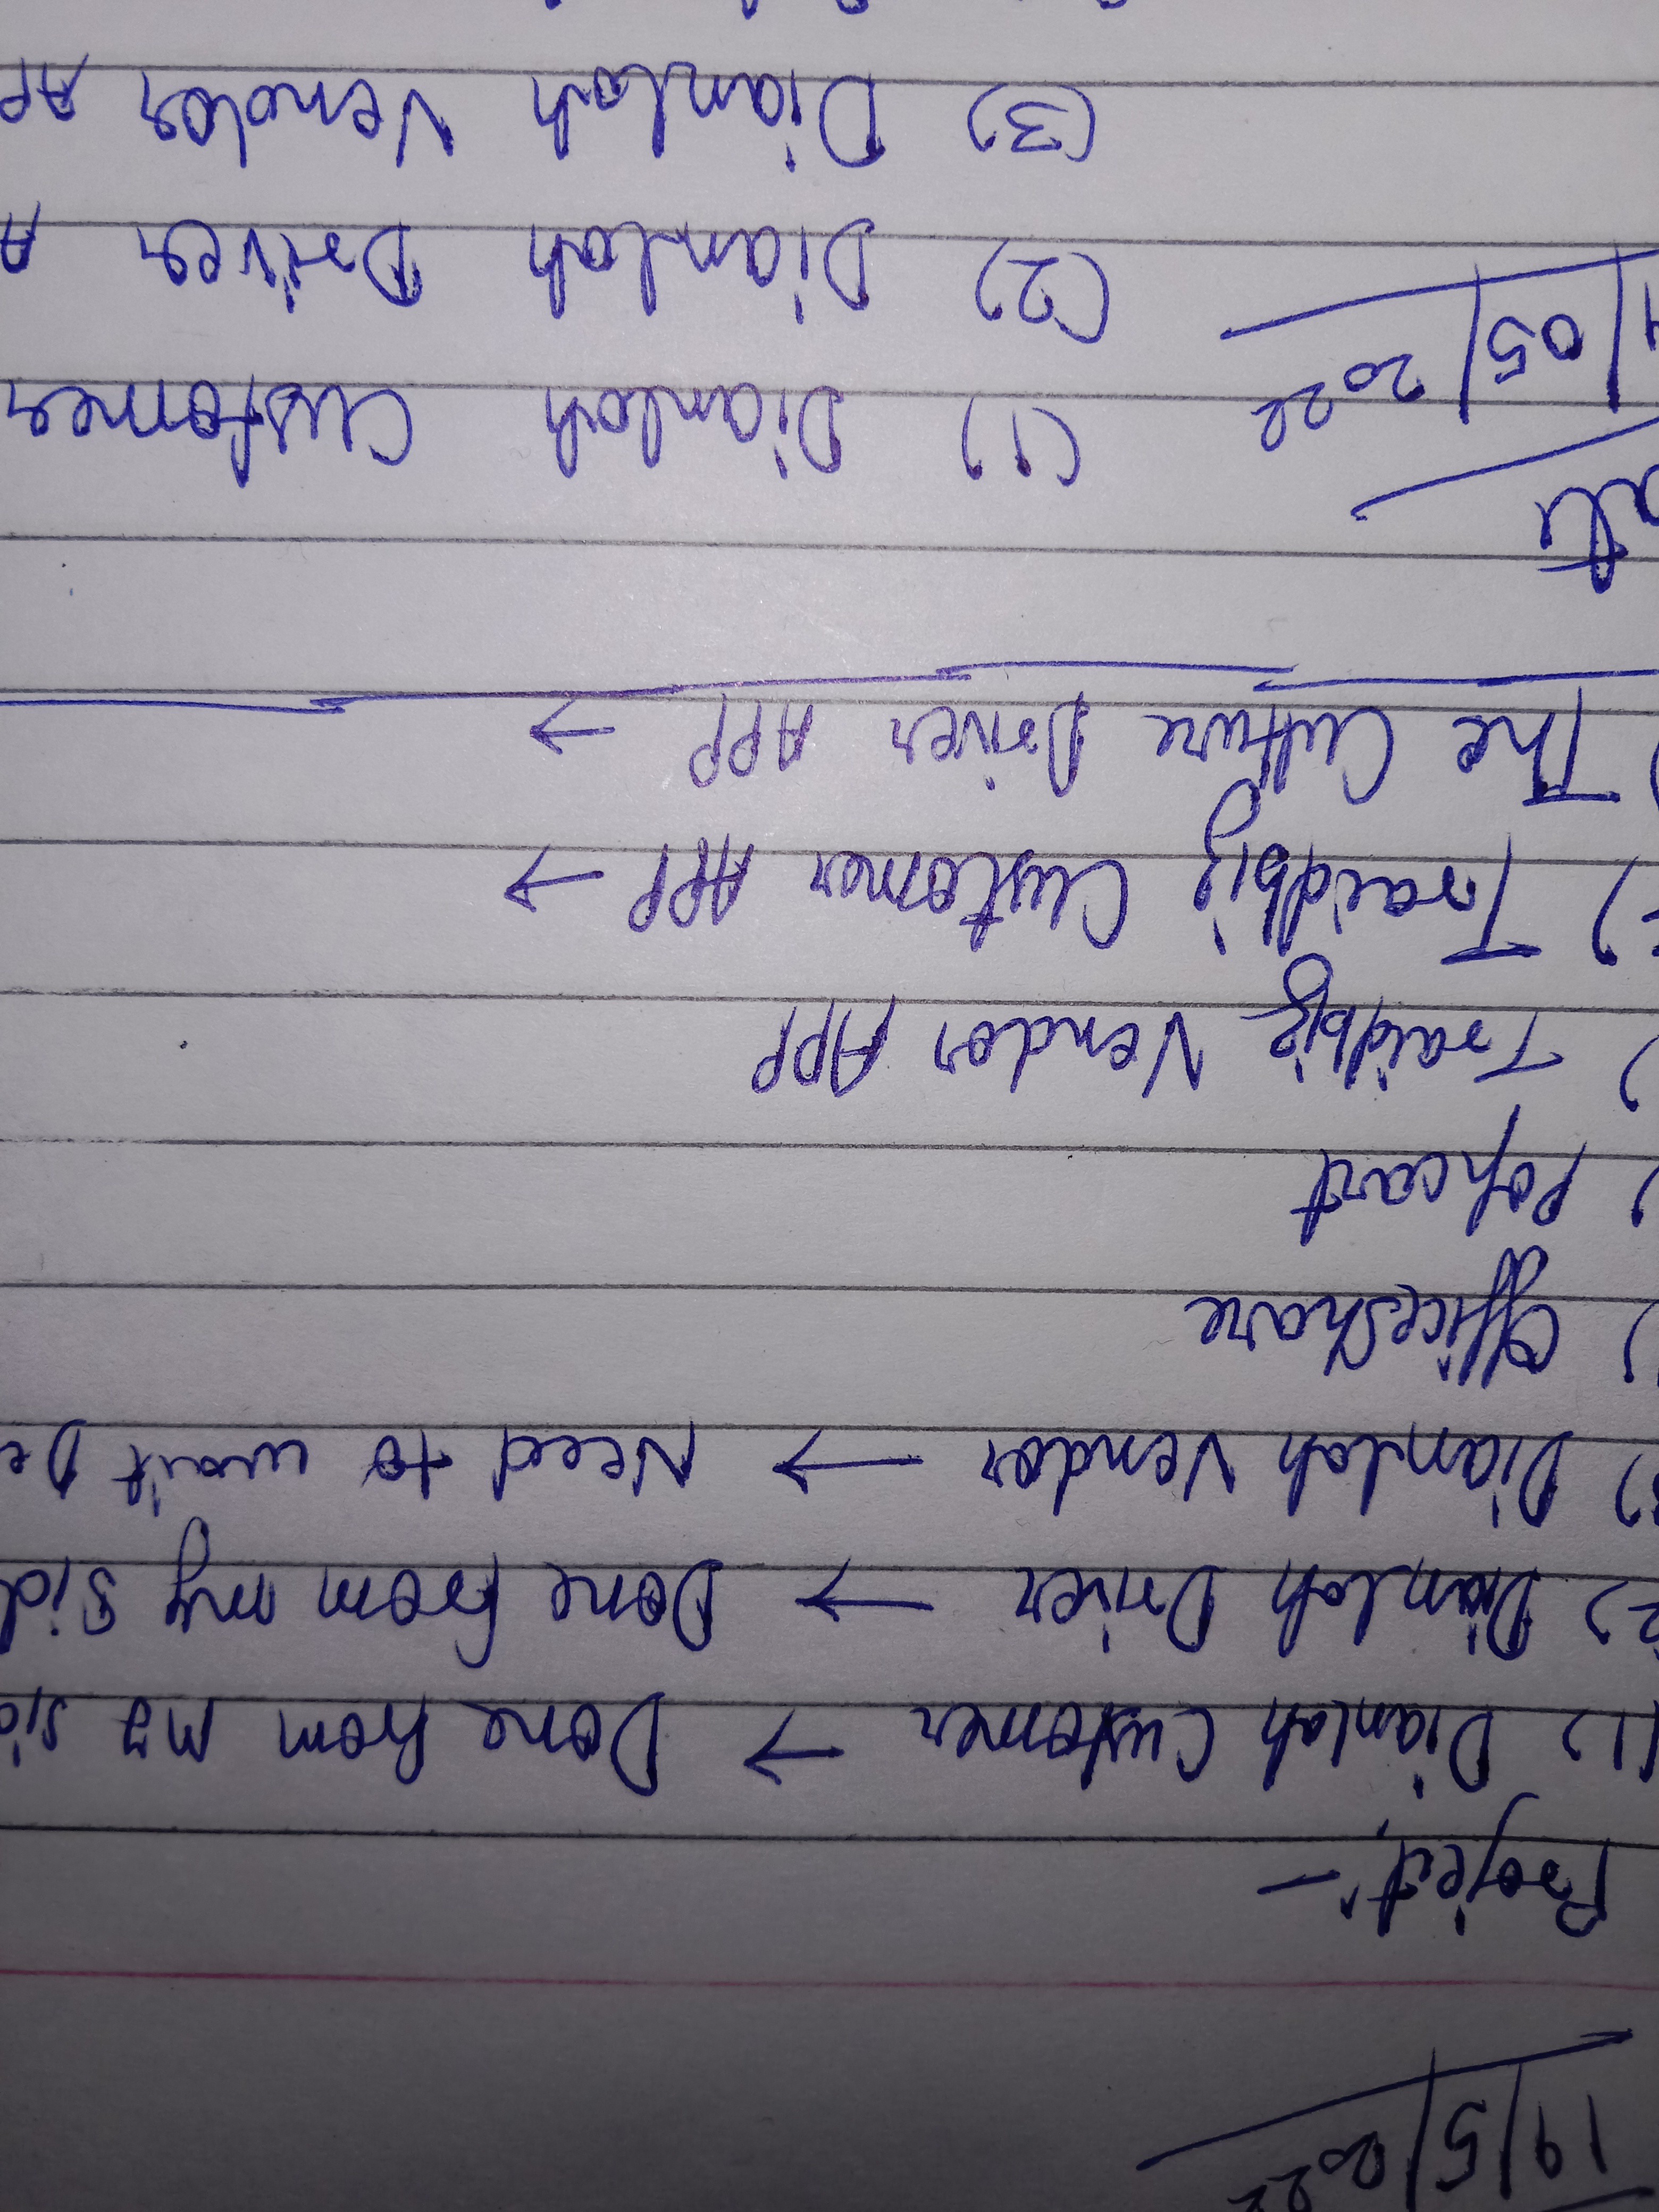 19/5/2022
Project:-
(1) Dianlah Customer → Done from my sid
2) Dianlah Driver → Done from my sid
3) Dianlah Vendor → Need to wait De
) OfficeShare
) Pohcart
) Traidbig Vendor APP
) Traidbig Customer APP →
) The Culture Driver APP →
ate
4/05/2022
(1) Dianlah Customer
(2) Dianlah Driver A
(3) Dianlah Vendor AP